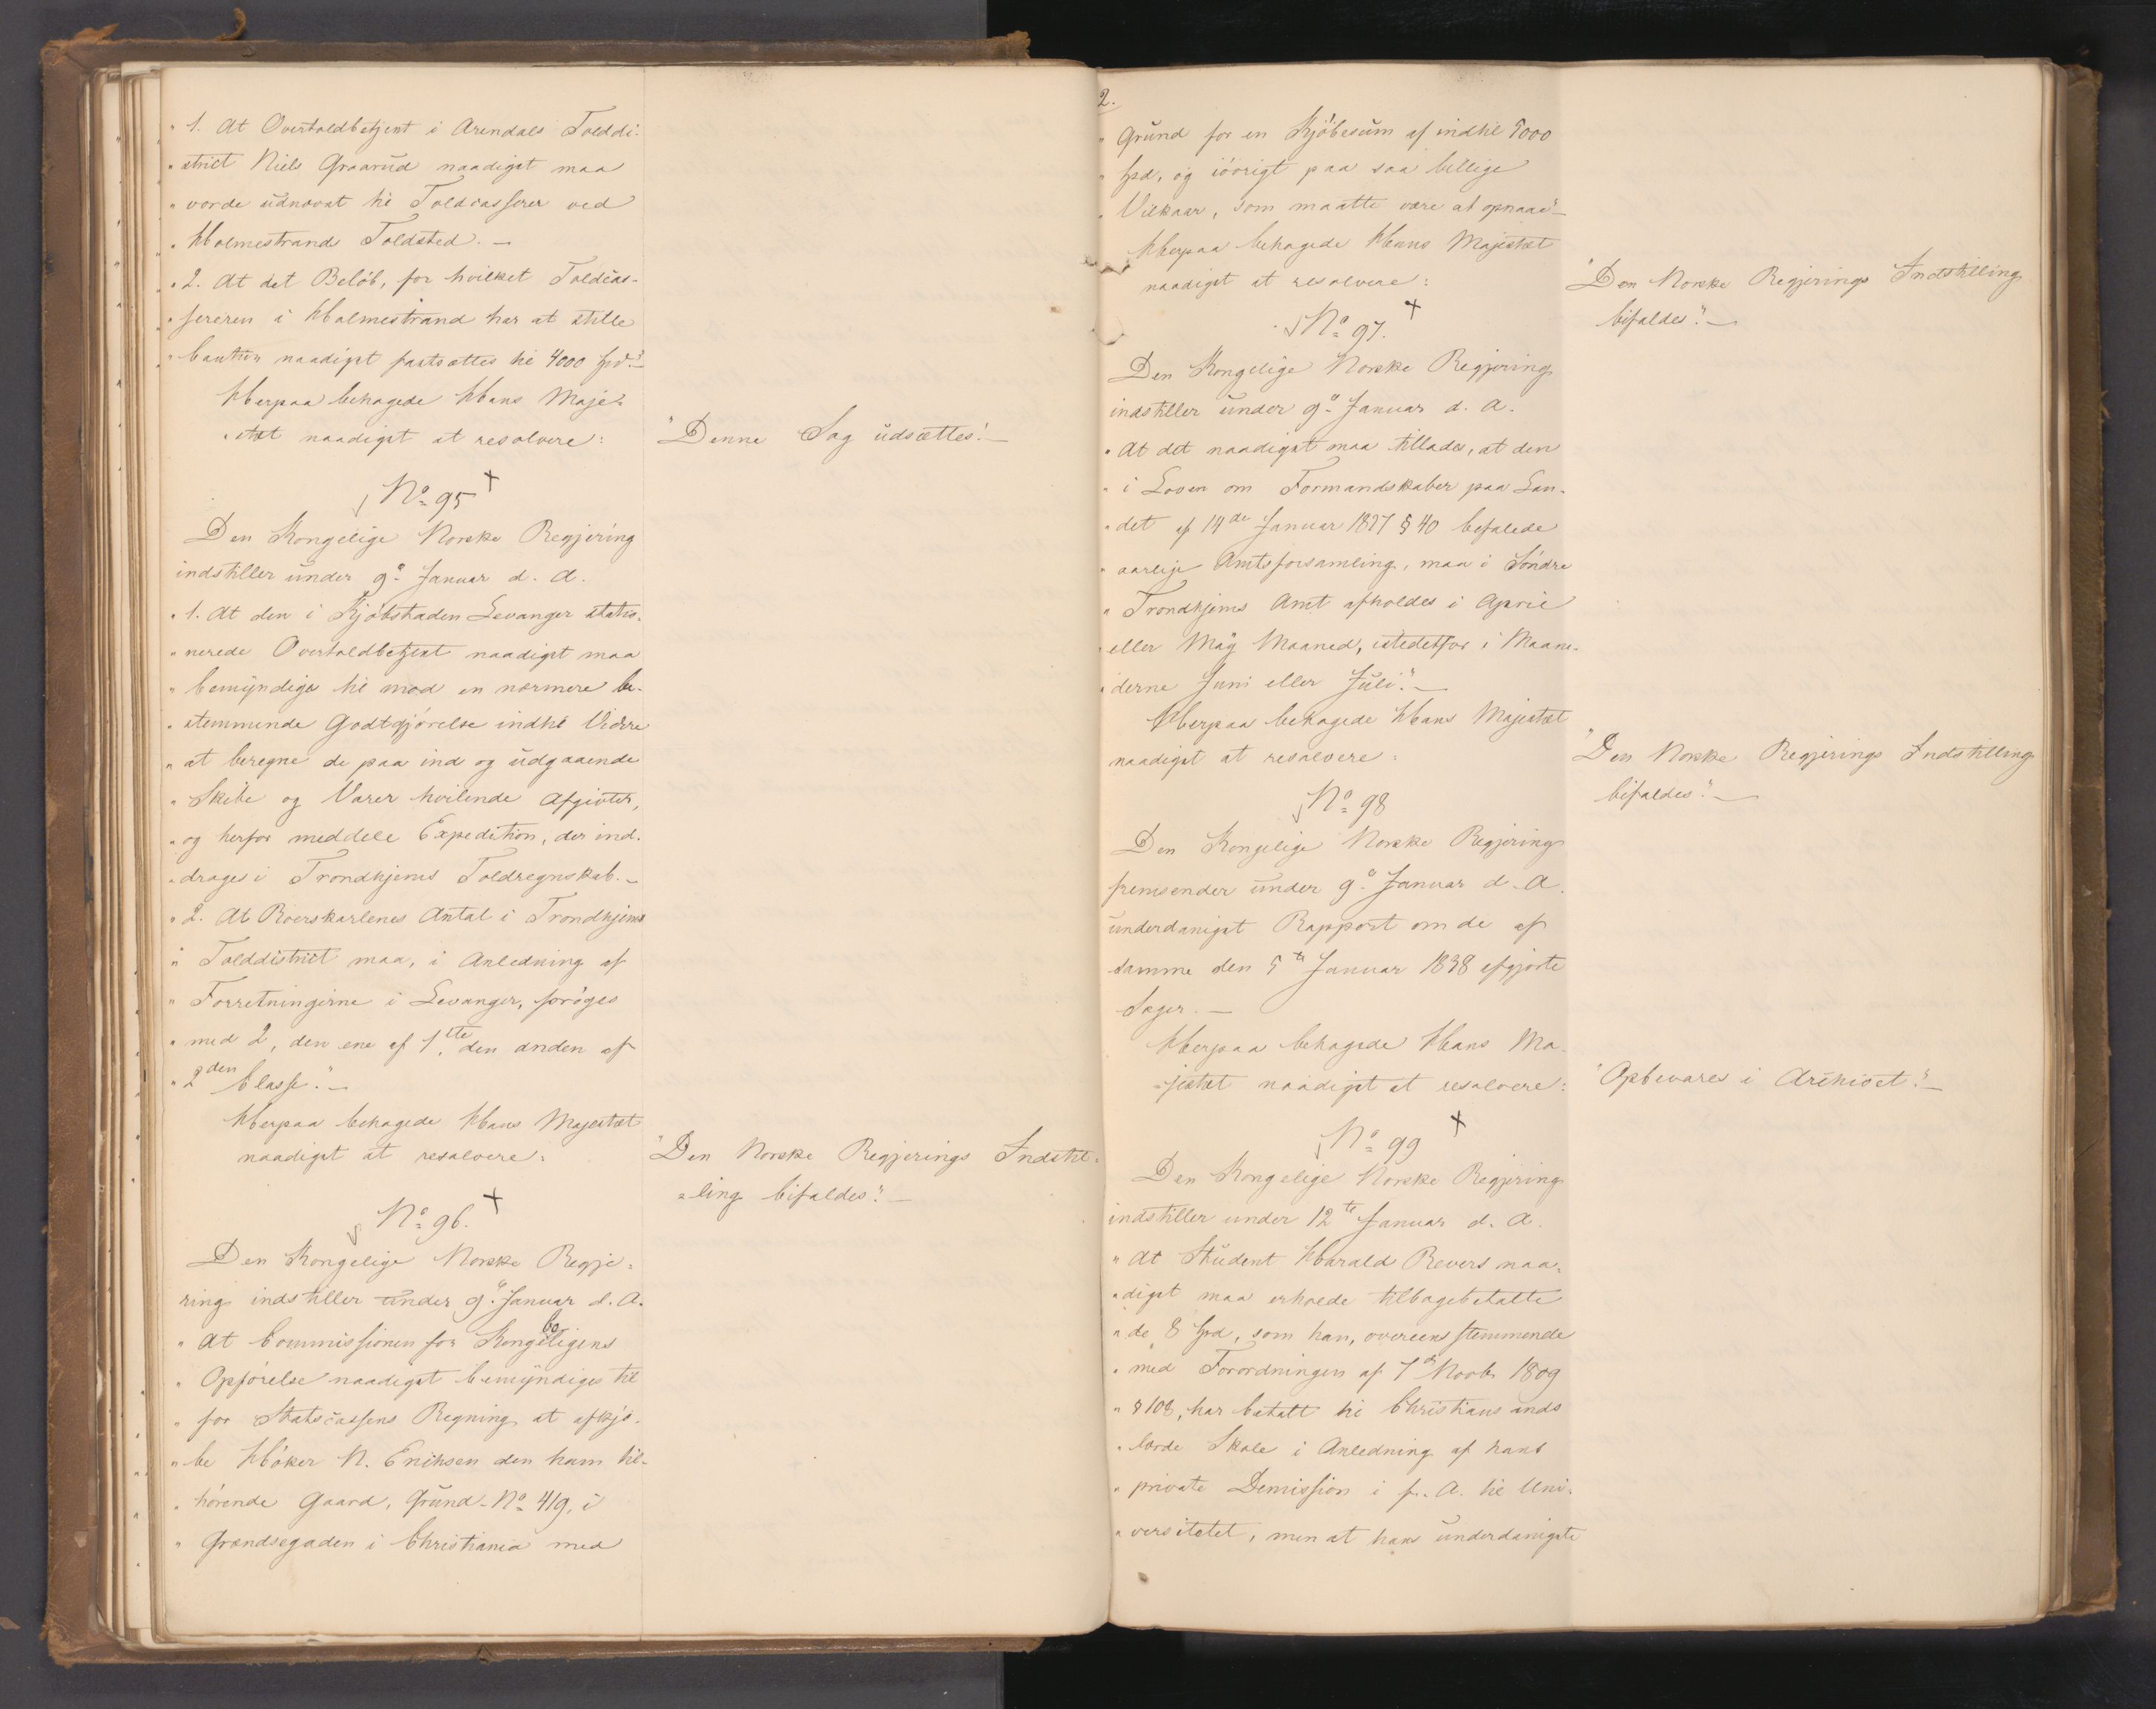 " 1. At Overtoldbetjent i Arendals Tolddi-
" strict Niels Graarud naadigst maa
" vorde udnævnt til Toldcasserer ved
" Holmestrands Toldsted. —
" 2. At det Beløb, for hvilket Toldcas-
" sereren i Holmestrand har at stille
" Caution naadigst fastsættes til 4000 Spd." —
Herpaa behagede Hans Maje-
stæt naadigst at resolvere:
"Denne Sag udsættes." —
No 95 +
Den Kongelige Norske Regjering
indstiller under 9de Januar d. A.
" 1. At den i Kjøbstaden Levanger statio-
" nerede Overtoldbetjent naadigst maa
" bemyndiges til mod en nærmere be-
" stemmende Godtgjørelse indtil Videre
" at beregne de paa ind og udgaaende
" Skibe og Varer hvilende Afgivter,
" og herfor meddele Expedition, der ind-
" drages i Trondhjems Toldregnskab. —
" 2. At Roerskarlenes Antal i Trondhjems
" Tolddistrict maa, i Anledning af
" Forretningerne i Levanger, forøges
" med 2, den ene af 1ste den anden af
" 2den Classe." —
Herpaa behagede Hans Majestæt
naadigst at resolvere:
"Den Norske Regjerings Indstil-
ling bifaldes." —
No 96. +
Den Kongelige Norske Regje-
ring indstiller under 9de Januar d. A.
" At Commissionen for Kongeboligens
" Opførelse naadigst bemyndiges til
" for Statscassens Regning at afkjø-
" be Høker N. Erichsen den ham til-
" hørende Gaard, Grund-No 419, i
" Grændsegaden i Christiania med
2.
" Grund for en Kjøbesum af indtil 5000
" Spd, og iøvrigt paa saa billige
" Vilkaar, som maatte være at opnaae" —
Herpaa behagede Hans Majestæt
naadigst at resolvere:
"Den Norske Regjerings Indstilling
bifaldes." —
No 97. +
Den Kongelige Norske Regjering
indstiller under 9de Januar d. A.
" At det naadigst maa tillades, at den
" i Loven om Formandskaber paa Lan-
" det af 14de Januar 1837 § 40 befalede
" aarlige Amtsforsamling, maa i Søndre
" Trondhjems Amt afholdes i April
" eller Maÿ Maaned, istedetfor i Maane-
" derne Juni eller Juli." —
Herpaa behagede Hans Majestæt
naadigst at resolvere:
"Den Norske Regjerings Indstilling
bifaldes." —
No 98
Den Kongelige Norske Regjering
fremsender under 9de Januar d. A.
underdanigst Rapport om de af
samme den 5te Januar 1838 afgjorte
Sager. —
Herpaa behagede Hans Ma-
jestæt naadigst at resolvere:
"Opbevares i Archivet." —
No 99 +
Den Kongelige Norske Regjering
indstiller under 12te Januar d. A.
" At Student Harald Revers naa-
" digst maa erholde tilbagebetalte
" de 8 Spd, som han, overeensstemmende
" med Forordningen af 7de Novbr 1809
" § 108, har betalt til Christiansands
" lærde Skole i Anledning af hans
" private Demission i f. A. til Uni-
" versitetet, men at hans underdanigste